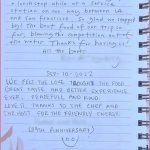 + lunch stop while at a service
station on our way between LA
and San Francisco. So glad we stopped
by! The best food of our trip so
far, blowing the competition out of
the water. Thanks for having us!
All the best!
SEP-10-2022
WE FEEL THE LOVE THROUGH THE FOOD.
GREAT TASTE AND BETTER EXPERIENCE
EVER. PEACEFULL AND KIND
LOVELY. THANKS TO THE CHEF AND
THE HOST FOR THE FRIENDLY ENERGY.
ANNIVERSARY)